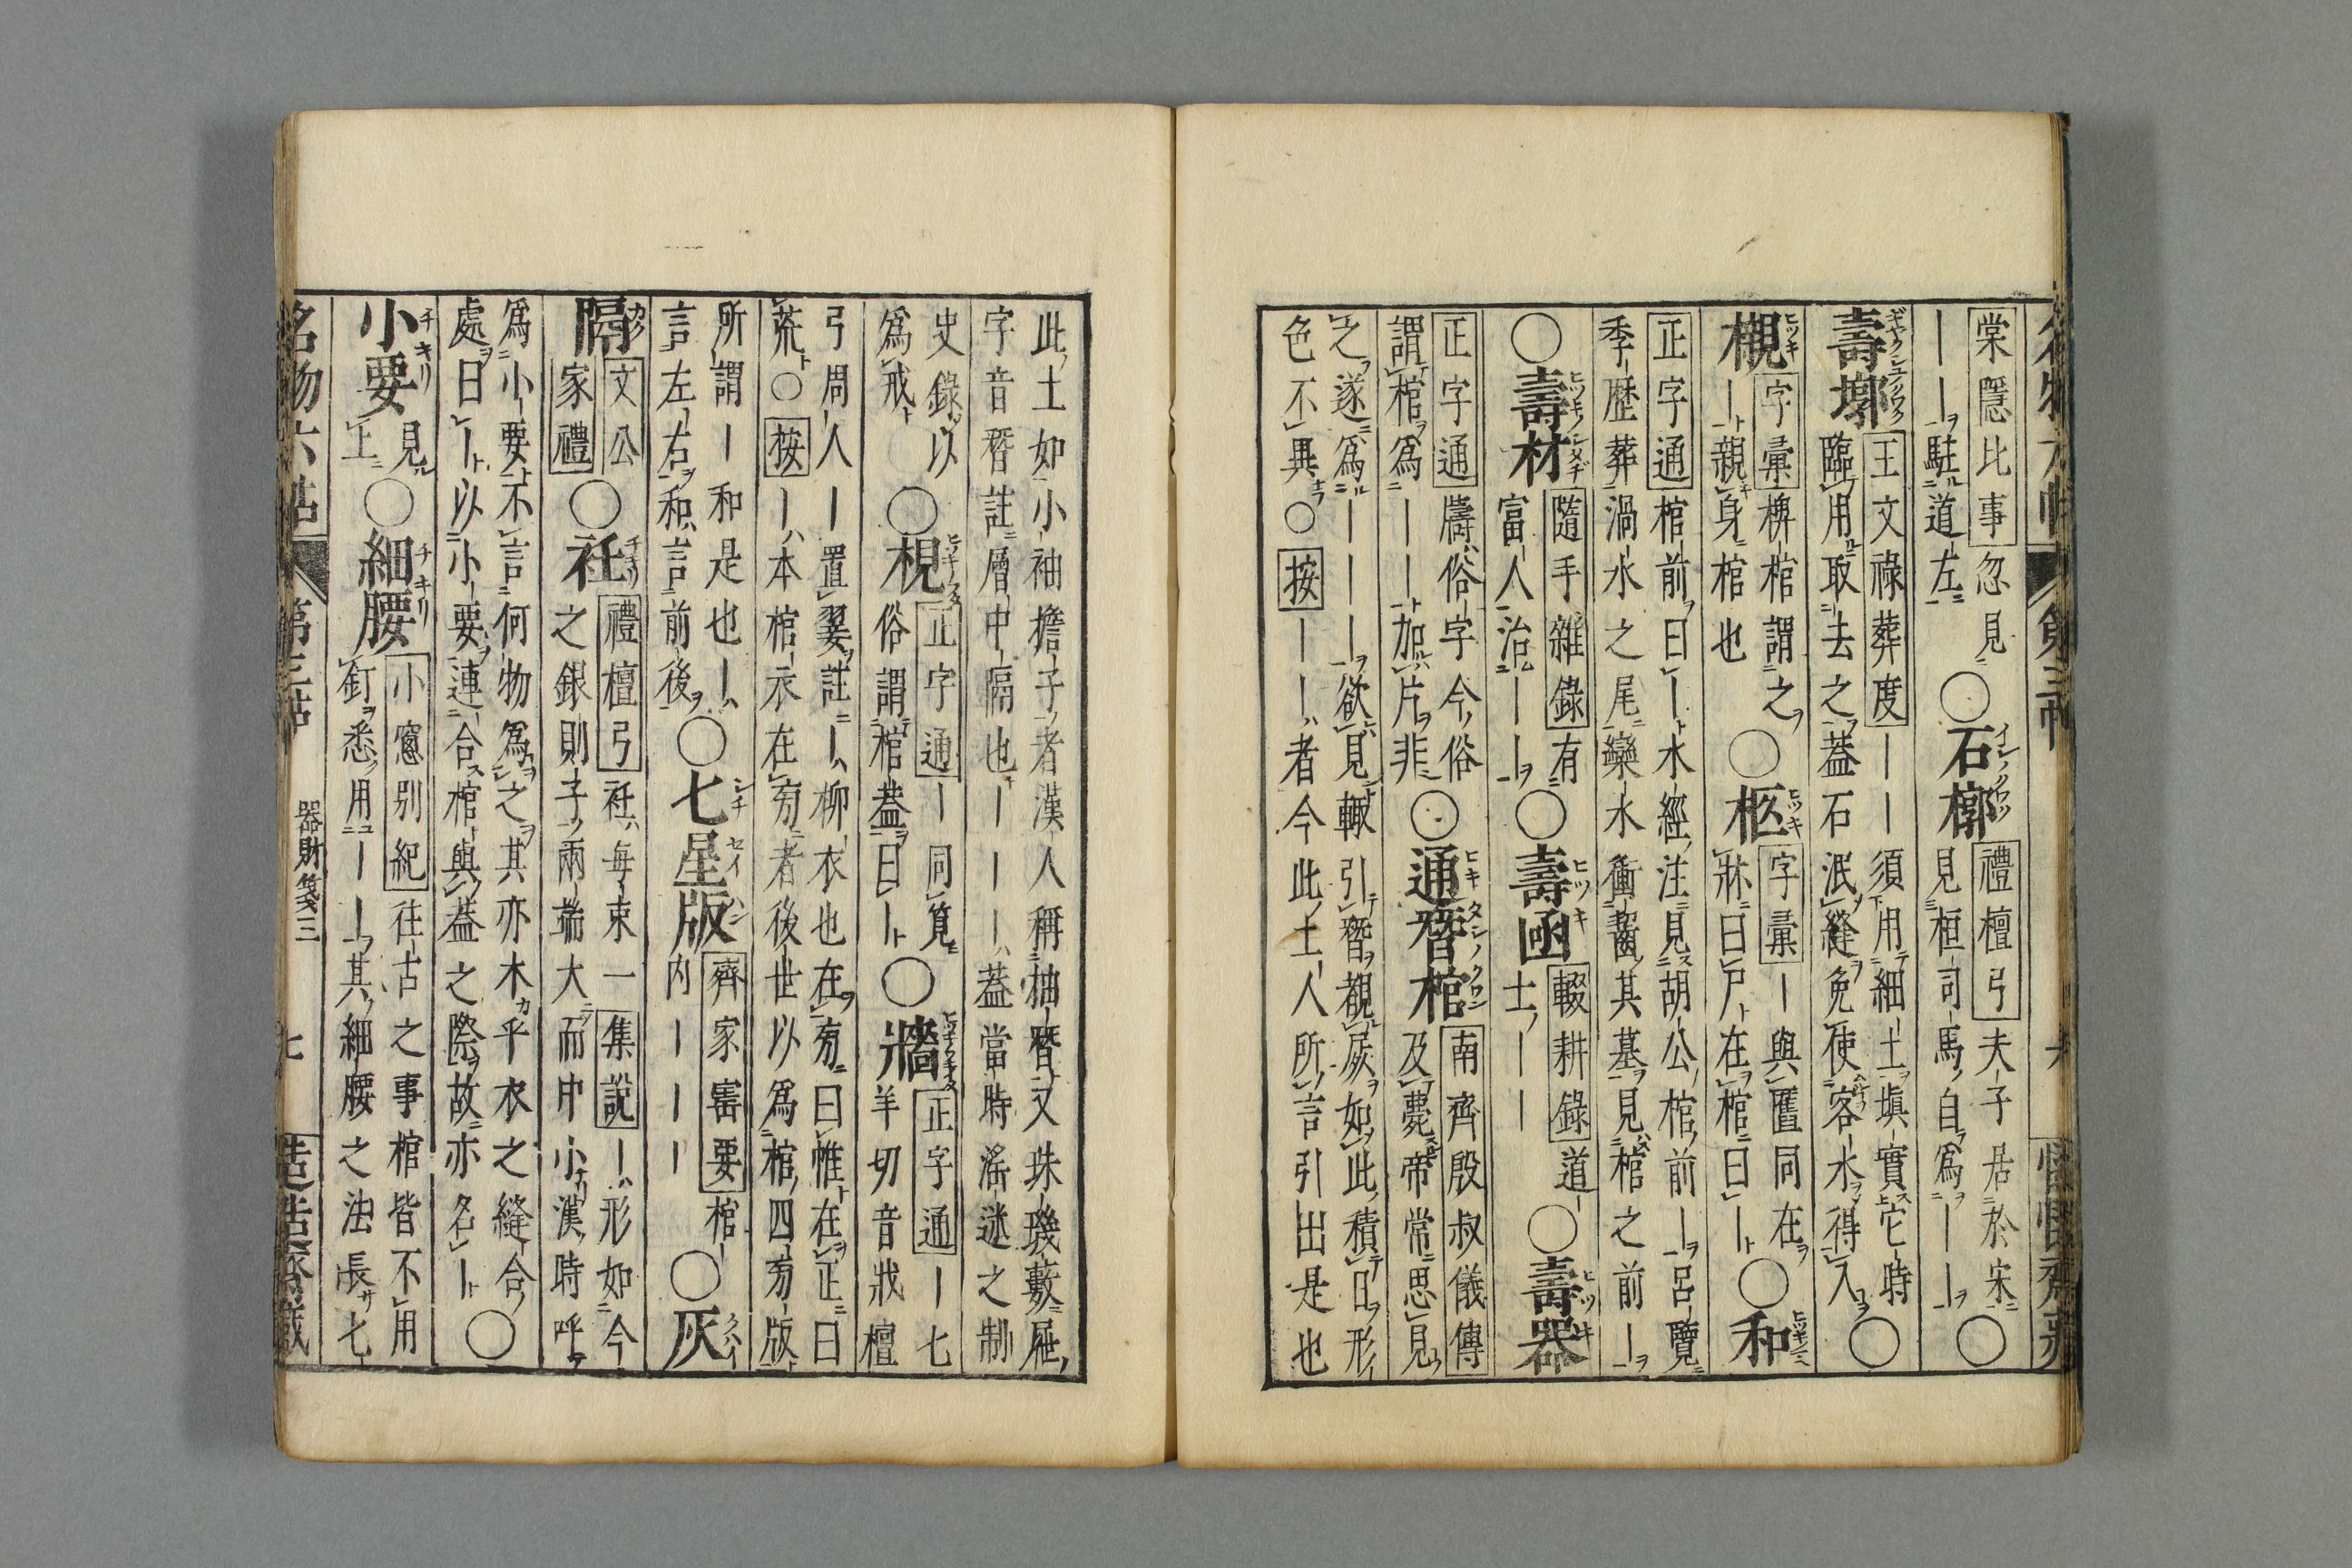 棠隱比事忽見
｜｜駐道左
○石槨禮檀弓夫子居於宋
見桓司馬自爲｜｜○
壽墎王文祿葬度｜｜須用細土塡實它時
臨用取去之蓋石泯縫免使客水得入○
櫬字彙椑棺謂之
｜親身棺也○柩字彙｜與匶同在
牀曰尸在棺曰｜○和
正字通棺前曰｜水經注見胡公棺前｜呂覽
季歷葬渦水之尾欒水衝齧其墓見棺之前｜
○壽材隨手雜錄有
富人治｜｜○壽函輟耕錄道
士｜｜○壽器
正字通牗俗字今俗
謂棺爲｜｜加片非○通替棺南齊殷叔儀傳
及薨帝常思見
之遂爲｜｜｜欲見輙引替覩屍如此積日形
色不異○按｜｜｜者今此土人所言引出是也
此土如小袖擔子者漢人稱抽替又珠璣藪屜
字音替註層中隔也｜｜｜蓋當時滛迷之制
史錄以
爲戒○梘正字通｜同筧
俗謂棺蓋曰｜○牆正字通｜七
羊切音戕檀
弓周人｜置翣註｜柳衣也在旁曰帷在正曰
荒○按｜本棺衣在旁者後世以爲棺四旁版
所謂｜和是也｜
言左右和言前後○七星版齊家寶要棺
内｜｜｜○灰
隔文公
家禮○衽禮檀弓衽每束一集說｜形如今
之銀則子兩端大而中小漢時呼
爲小要不言何物爲之其亦木乎衣之縫合
處曰｜以小要連合棺與蓋之際故亦名｜○
小要見
上○細腰小窻別紀往古之事棺皆不用
釘悉用｜｜其細腰之法長七
名物六帖
第三帖
器財箋三
七